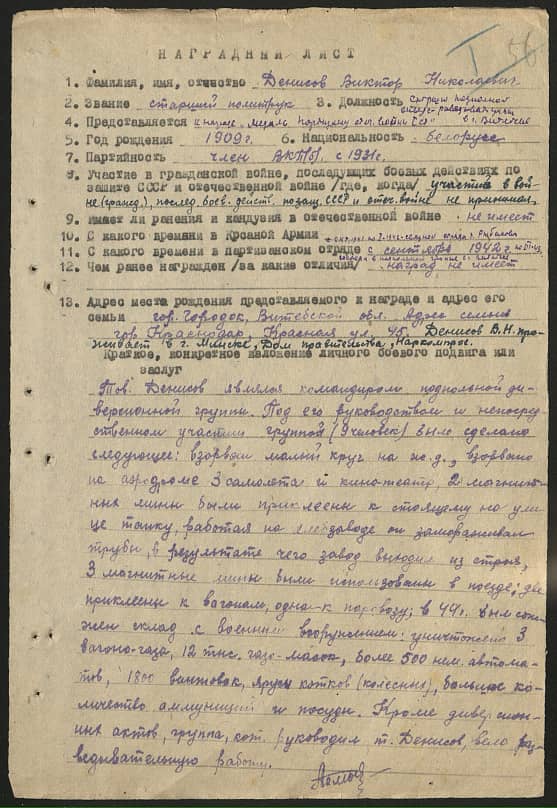 I 56
НАГРАДНЫЙ ЛИСТ
1. Фамилия, имя, отчество Денисов Виктор Николаевич
2. Звание старший политрук 3. Должность
4. Представляется к награде медаль партизану отеч. войны
5. Год рождения 1909 г. 6. Национальность белорусс
7. Партийность член ВКП(б) с 1931 г.
8. Участие в гражданской войне, последующих боевых действиях по
защите СССР и отечественной войне /где, когда/ участие в вой-
не (гражд.), послед. боев. действ. по защ. СССР и отеч. войне не принимал
9. Имеет ли ранения и кандузия в отечественной войне не имеет
10. С какого времени в Крсаной Армии
11. С какого времени в Партизанском отряде с сентября 1942 г.
12. Чем ранее награжден /за какие отличия/ наград не имеет
13. Адрес места рождения представляемого к награде и адрес его
семьи гор. Городок, Витебской обл. Адрес семьи
гор. Краснодар, Красная ул. 45. Денисов В.Н. про-
живает в г. Минске, Дом правительства, Наркомпрос.
Краткое, конкретное изложение личного боевого подвига или
заслуг
Тов. Денисов являлся командиром подпольной ди-
версионной группы. Под его руководством и непосред-
ственном участии группой (9 человек) было сделано
следующее: взорван малый круг на ж.д., взорвано
на аэродроме 3 самолета и кинотеатр, 2 магнит-
ных мины были приклеены к стоящему на ули-
це танку, работая на заводе он замораживал
трубы, в результате чего завод выходил из строя,
3 магнитные мины были использованы в поезде: две
приклеены к вагонам, одна к паровозу; в 44 г. был сож-
жен склад с военным вооружением: уничтожено 3
вагона-газа, 12 тыс. газо-масок, более 500 нем. автома-
тов, 1800 винтовок, ярусы катков (колесных), большое ко-
личество аммуниций и посуды. Кроме диверсион-
ных актов, группа, кот. руководил т. Денисов, вела раз-
ведывательную работу.